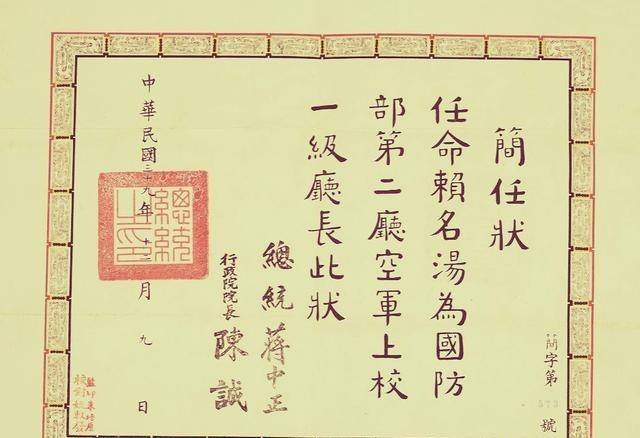 簡任狀
任命賴名湯為國防
部第二廳空軍上校
一級廳長此狀
總統 蔣中正
行政院院長 陳誠
中華民國三十九年十二月九日
總統之印
簡字第 573 號
監印
校對